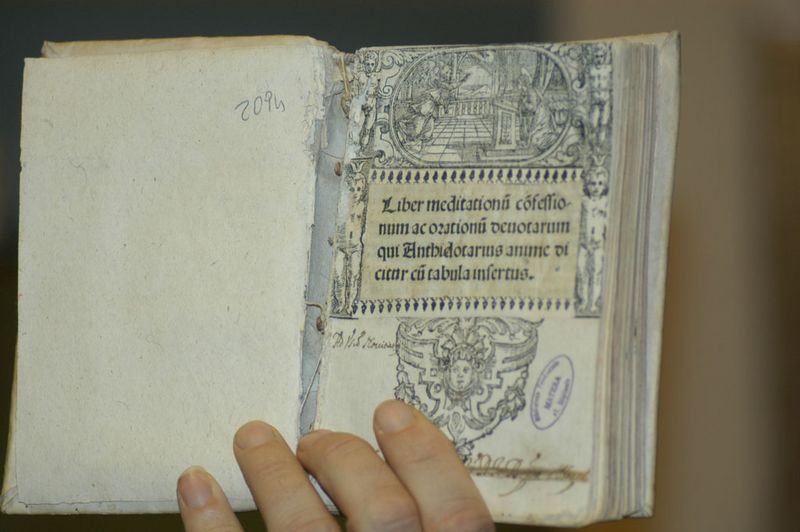 2094
Liber meditationū cōfessio-
num ac orationū deuotarum
qui Anthidotarius anime di
citur cū tabula insertus.
MATERA